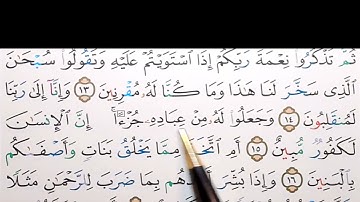 ثُمَّ تَذْكُرُوا۟ نِعْمَةَ رَبِّكُمْ إِذَا ٱسْتَوَيْتُمْ عَلَيْهِ وَتَقُولُوا۟ سُبْحَٰنَ
ٱلَّذِى سَخَّرَ لَنَا هَٰذَا وَمَا كُنَّا لَهُۥ مُقْرِنِينَ ١٣ وَإِنَّآ إِلَىٰ رَبِّنَا
لَمُنقَلِبُونَ ١٤ وَجَعَلُوا۟ لَهُۥ مِنْ عِبَادِهِۦ جُزْءًا ۚ إِنَّ ٱلْإِنسَٰنَ
لَكَفُورٌ مُّبِينٌ ١٥ أَمِ ٱتَّخَذَ مِمَّا يَخْلُقُ بَنَاتٍ وَأَصْفَىٰكُم
بِٱلْبَنِينَ ١٦ وَإِذَا بُشِّرَ أَحَدُهُم بِمَا ضَرَبَ لِلرَّحْمَٰنِ مَثَلًا